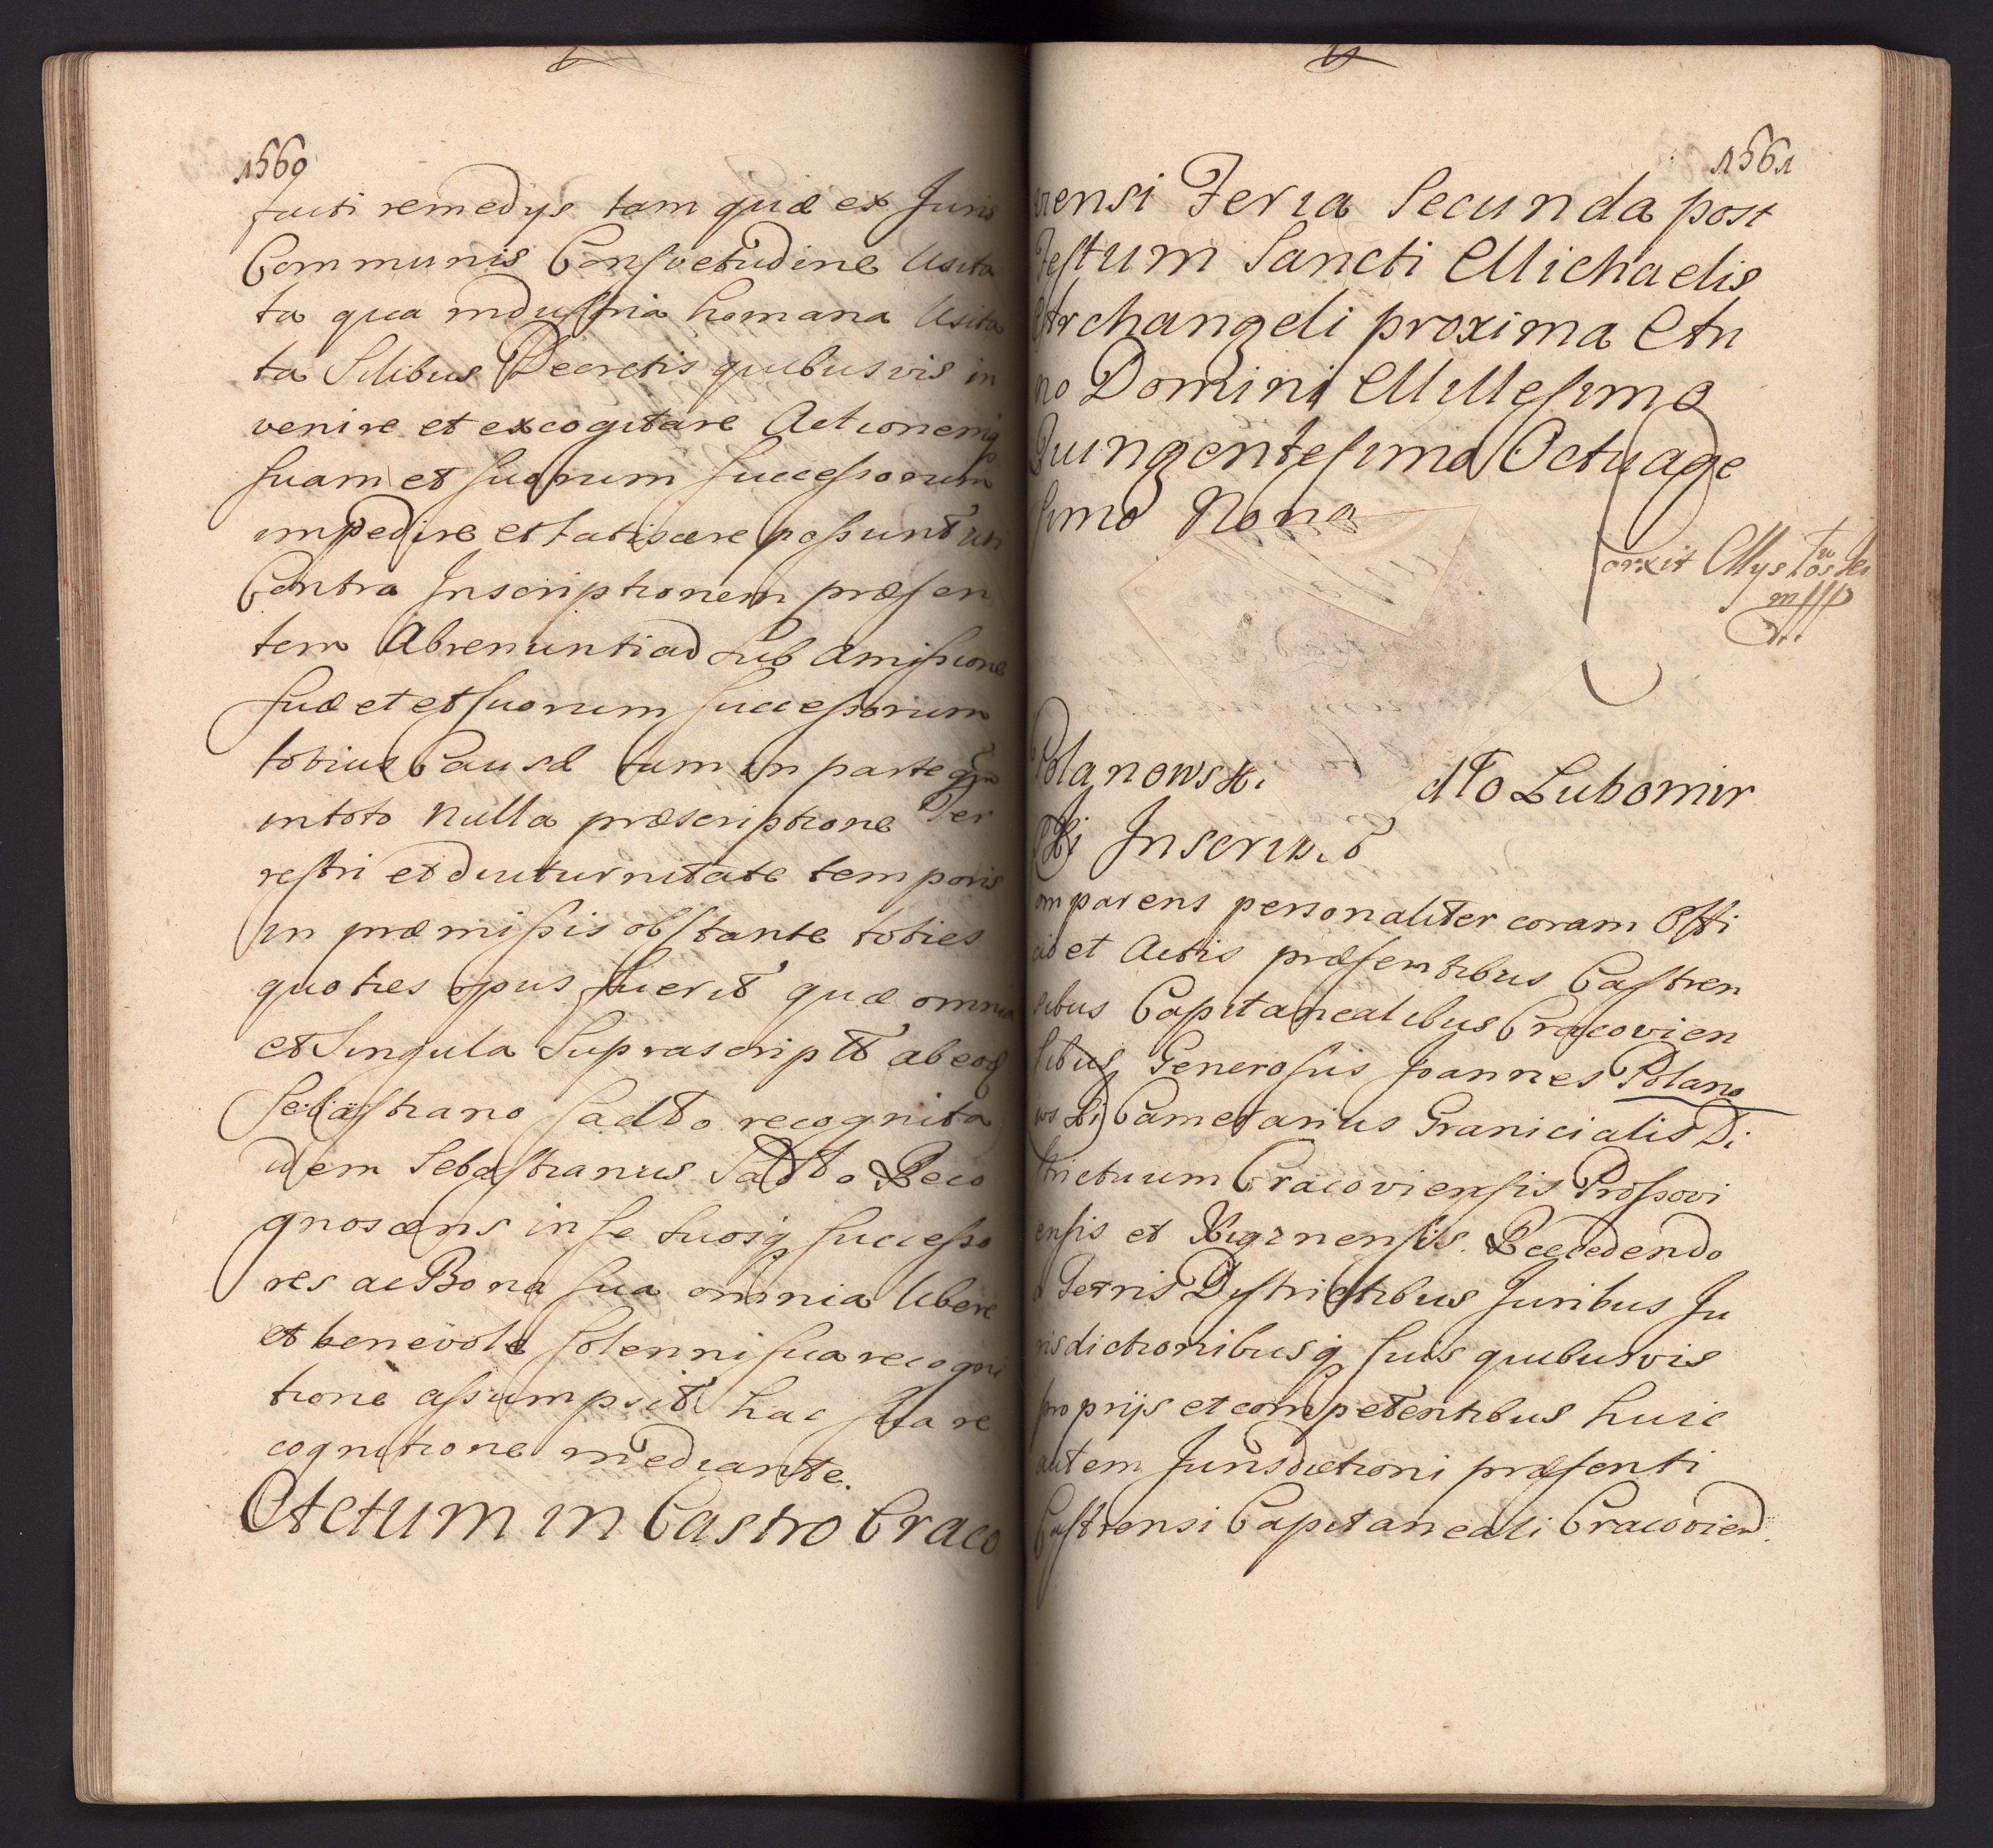 1560
facti remedys tam quæ ex Juris
Communis Consvetudine Usita
ta qua industria homana Usita
ta Silibus Decretis quibusvis in
venire et excogitare Actionemq
suam et suorum successorum
impedire et Saticare possunt uti
Contra Inscriptionem præsen
tem Abrenuntiad sub amissione
suæ et et suorum successorum
totius Causæ tam in parte qm
in toto nulla præscriptione Ter
restri et diuturnitate temporis
in præmissis obstante toties
quoties opus fuerit quæ omnia
et Singula Suprascriptt ab eod
Sebastiano Sadto recognita
idem Sebastianus Sadto Reco
gnoscens in se suosq successo
res ac Bona sua omnia libere
et benevole solenni sua recogni
tione assumpsit hac sua re
cognitione mediante.
Actum in Castro Craco
1561
viensi Feria Secunda post
Festum Sancti Michaelis
Archangeli proxima An
no Domini Millesimo
Quingentesimo Octuage
simo Nono
Polanowski dto Lubomir
ski Inscribit
omparens personaliter coram Offi
cio et Actis præsentibus Castren
sibus Capitanealibus Cracovien
sibus Generosus Joannes Polano
wski Camerarius Granicialis Di
strictuum Cracoviensis Prossovi
ensis et Xiąznensis. Recedendo
a Terris Districtibus Juribus Ju
risdictionibusq suis quibusvis
proprijs et competentibus huic
autem Jurisdictioni præsenti
Castrensi Capitaneali Cracovien